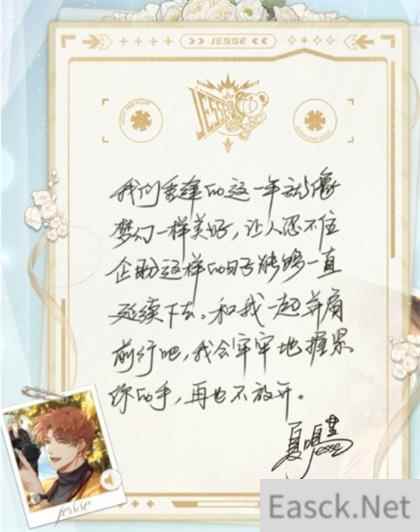 >> JESSE <<
JESSE
我们重逢的这一年就像
梦幻一样美好，让人忍不住
企盼这样的日子能够一直
延续下去。和我一起并肩
前行吧，我会牢牢地握紧
你的手，再也不放开。
夏鸣星
Jesse
Easck.Net